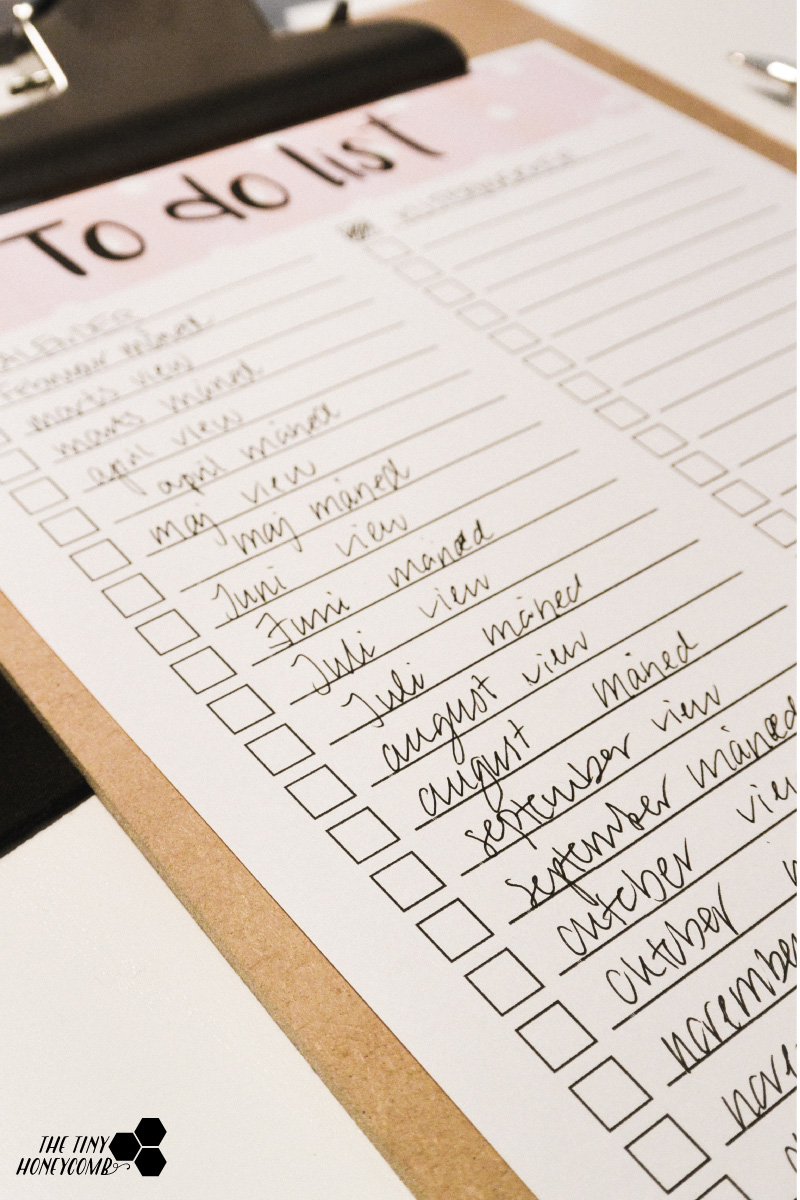 To do list
KALENDER
Februar måned
marts view
marts måned
april view
april måned
maj view
maj måned
Juni view
Juni måned
Juli view
Juli måned
august view
august måned
september view
september måned
oktober view
oktober
november
THE TINY
HONEYCOMB